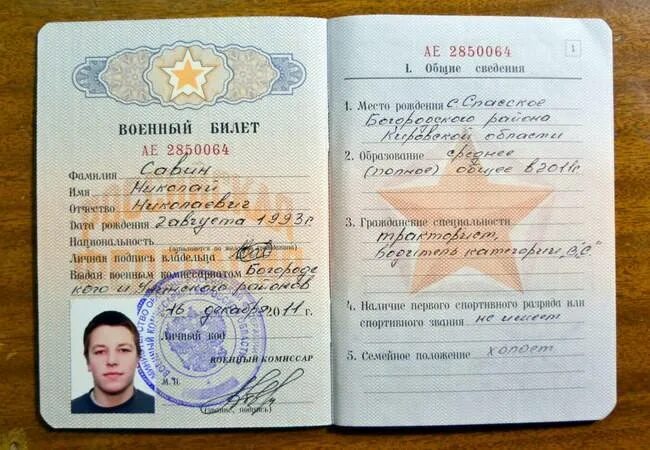 ВОЕННЫЙ БИЛЕТ
АЕ 2850064
Фамилия Савин
Имя Николай
Отчество Николаевич
Дата рождения 2 августа 1993 г.
Национальность
(заполняется по желанию владельца)
Личная подпись владельца
Выдан военным комиссариатом Богородс
кого и Унинского районов
16 декабря 2011 г.
Личный код
ВОЕННЫЙ КОМИССАР
М.П.
(звание, подпись)
АЕ 2850064
1
I. Общие сведения
1. Место рождения с. Спасское
Богородского района
Кировской области
2. Образование среднее
(полное) общее в 2011г
3. Гражданские специальности
тракторист,
водитель категории "В,С"
4. Наличие первого спортивного разряда или
спортивного звания не имеет
5. Семейное положение холост